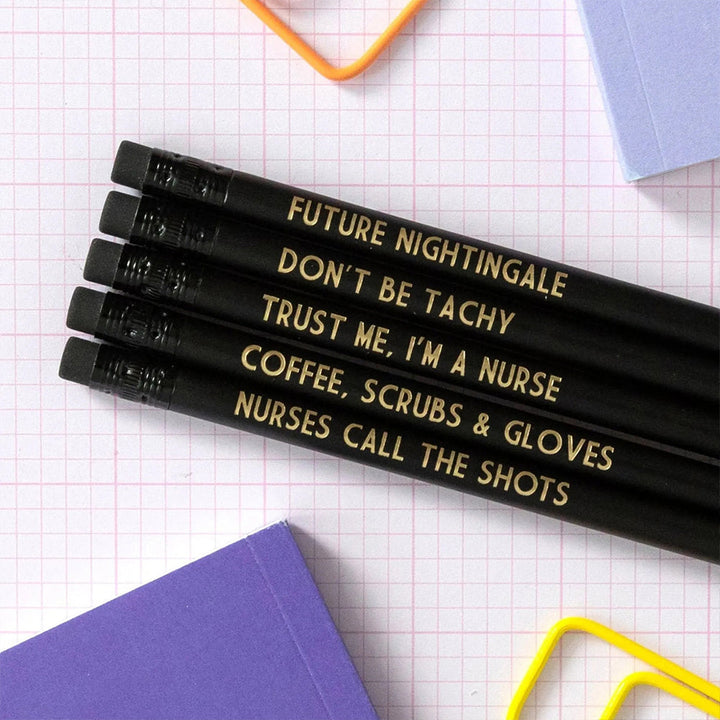 FUTURE NIGHTINGALE
DON'T BE TACHY
TRUST ME, I'M A NURSE
COFFEE, SCRUBS & GLOVES
NURSES CALL THE SHOTS